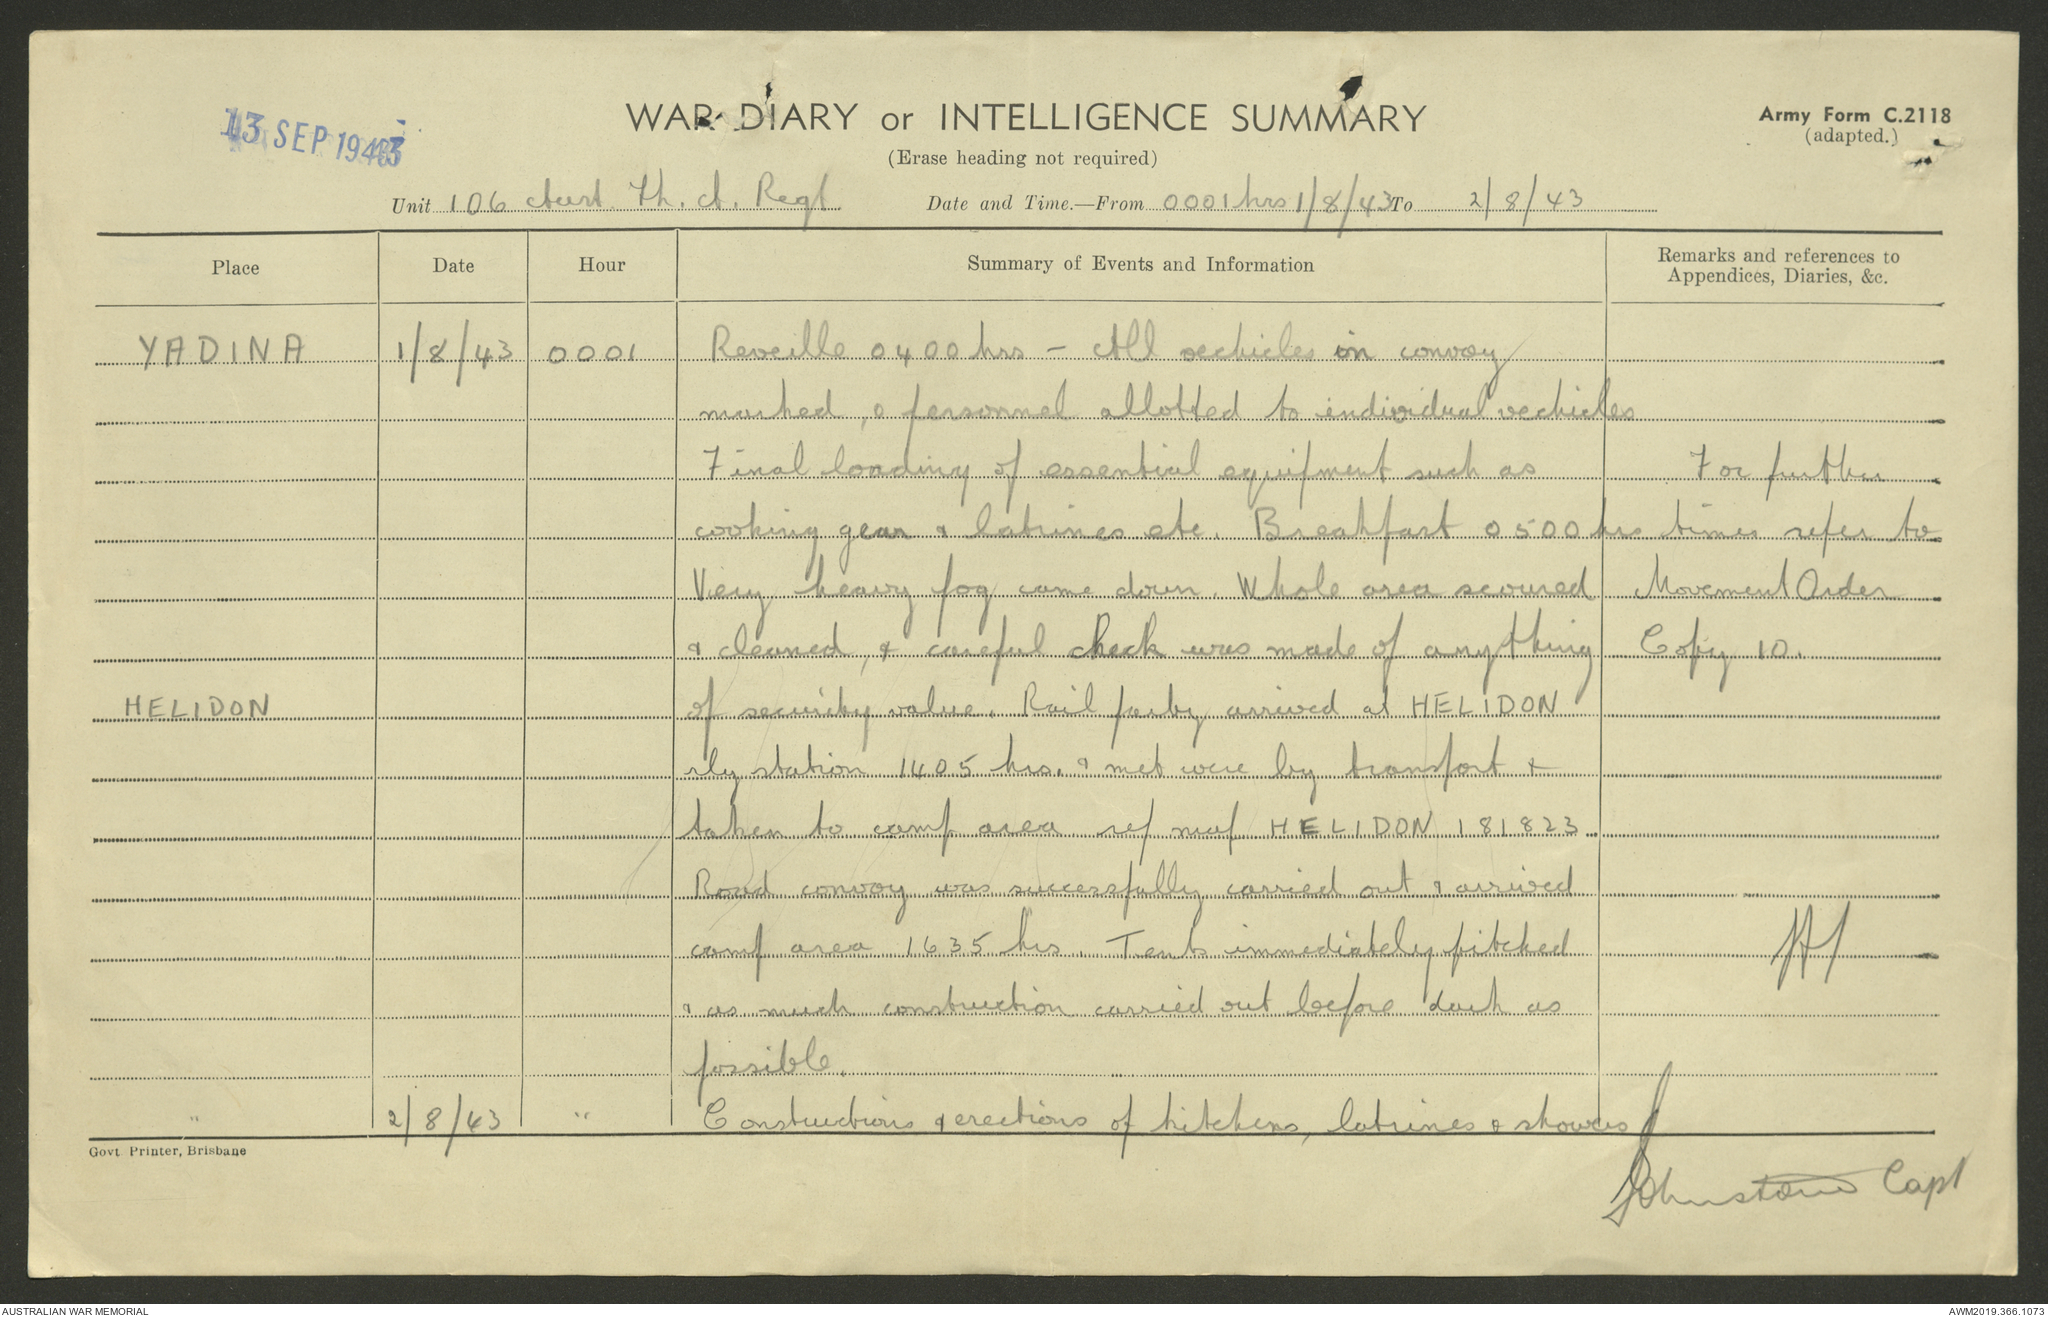 13 SEP 1943
WAR DIARY or INTELLIGENCE SUMMARY
Army Form C.2118
(adapted.)
(Erase heading not required)
Unit 106 Aust. Tk. A. Regt
Date and Time.—From 0001 hrs 1/8/43 To 2/8/43
Place Date Hour Summary of Events and Information Remarks and references to
Appendices, Diaries, &c.
YADINA 1/8/43 0001 Reveille 0400 hrs - All vechicles in convoy
marked, & personnel allotted to individual vechicles
Final loading of essential equipment such as For further
cooking gear & latrines etc. Breakfast 0500 hrs times refer to
Very heavy fog came down. Whole area scoured Movement Order
& cleaned, & careful check was made of anything Copy 10.
HELIDON of security value. Rail party arrived at HELIDON
rly station 1405 hrs. & met were by transport &
taken to camp area ref map HELIDON 181823
Road convoy was successfully carried out & arrived
camp area 1635 hrs. Tents immediately pitched
& as much construction carried out before dark as
possible.
" 2/8/43 " Constructions & erections of kitchens, latrines & showers
Govt Printer, Brisbane
Johnstone Capt
AUSTRALIAN WAR MEMORIAL
AWM2019.366.1073